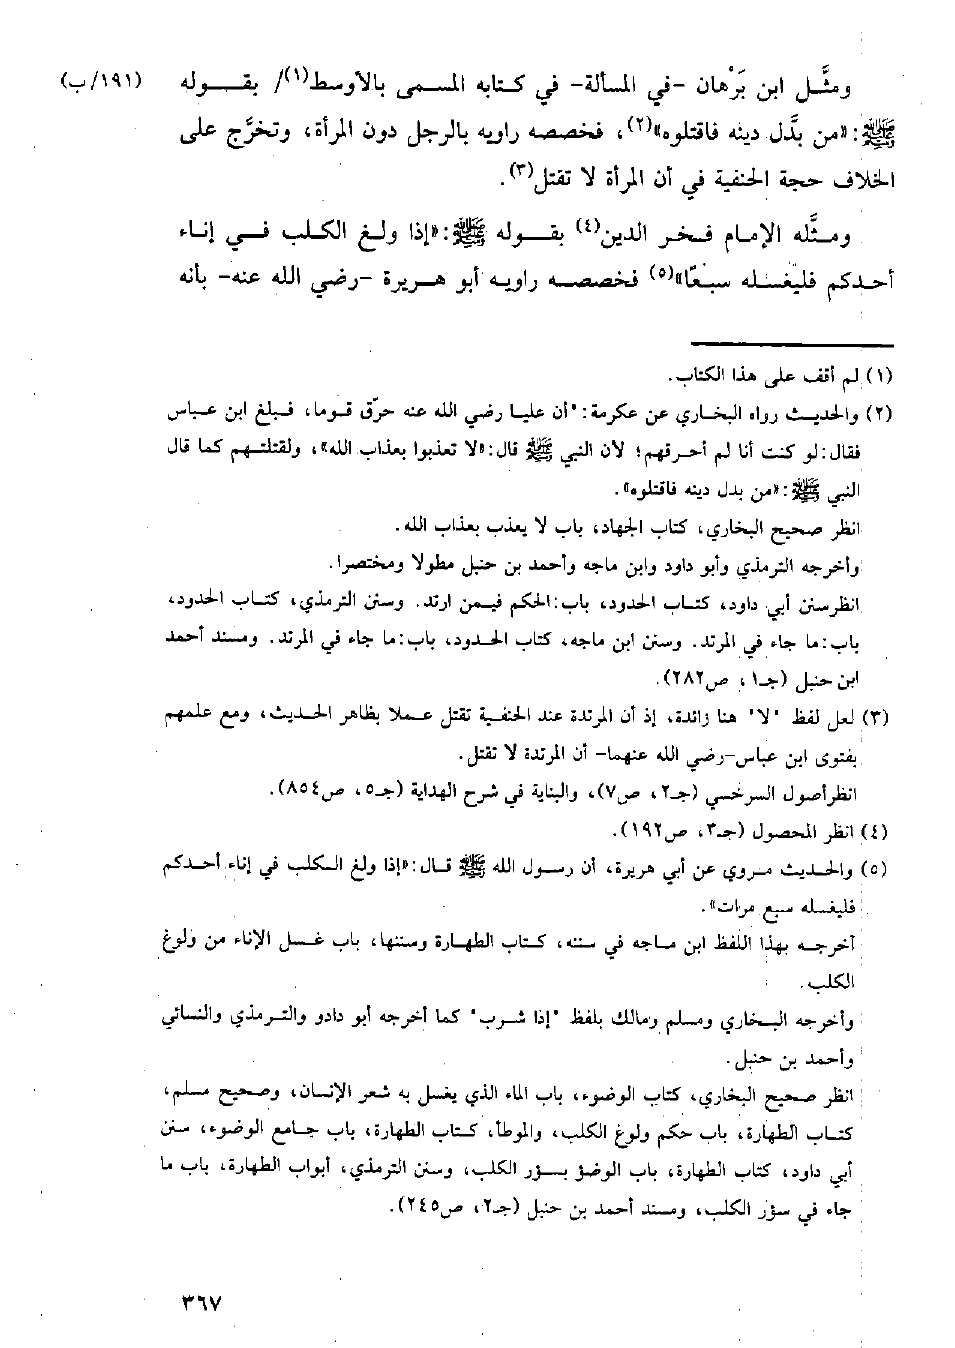 ومثَّل ابن بَرْهان -في المسألة- في كتابه المسمى بالأوسط(١)/ بقـــوله (١٩١/ب)
ﷺ: «من بدَّل دينه فاقتلوه»(٢)، فخصصه راويه بالرجل دون المرأة، وتخرَّج على
الخلاف حجة الحنفية في أن المرأة لا تقتل(٣).
ومثَّله الإمام فخر الدين(٤) بقوله ﷺ: «إذا ولغ الكلب في إناء
أحدكم فليغسله سبعًا»(٥) فخصصه راويه أبو هريرة -رضي الله عنه- بأنه
(١) لم أقف على هذا الكتاب.
(٢) والحديث رواه البخاري عن عكرمة: "أن عليا رضي الله عنه حرّق قوما، فبلغ ابن عباس
فقال: لو كنت أنا لم أحرقهم؛ لأن النبي ﷺ قال: «لا تعذبوا بعذاب الله»، ولقتلتهم كما قال
النبي ﷺ: «من بدل دينه فاقتلوه».
انظر صحيح البخاري، كتاب الجهاد، باب لا يعذب بعذاب الله.
وأخرجه الترمذي وأبو داود وابن ماجه وأحمد بن حنبل مطولا ومختصرا.
انظر سنن أبي داود، كتاب الحدود، باب: الحكم فيمن ارتد. وسنن الترمذي، كتاب الحدود،
باب: ما جاء في المرتد. وسنن ابن ماجه، كتاب الحدود، باب: ما جاء في المرتد. ومسند أحمد
ابن حنبل (جـ١، ص٢٨٢).
(٣) لعل لفظ "لا" هنا زائدة، إذ أن المرتدة عند الحنفية تقتل عملا بظاهر الحديث، ومع علمهم
بفتوى ابن عباس-رضي الله عنهما- أن المرتدة لا تقتل.
انظر أصول السرخسي (جـ٢، ص٧)، والبناية في شرح الهداية (جـ٥، ص٨٥٤).
(٤) انظر المحصول (جـ٣، ص١٩٢).
(٥) والحديث مروي عن أبي هريرة، أن رسول الله ﷺ قال: «إذا ولغ الكلب في إناء أحدكم
فليغسله سبع مرات».
أخرجه بهذا اللفظ ابن ماجه في سننه، كتاب الطهارة وسننها، باب غسل الإناء من ولوغ
الكلب.
وأخرجه البخاري ومسلم ومالك بلفظ "إذا شرب" كما أخرجه أبو دادو والترمذي والنسائي
وأحمد بن حنبل.
انظر صحيح البخاري، كتاب الوضوء، باب الماء الذي يغسل به شعر الإنسان، وصحيح مسلم،
كتاب الطهارة، باب حكم ولوغ الكلب، والموطأ، كتاب الطهارة، باب جامع الوضوء، سنن
أبي داود، كتاب الطهارة، باب الوضؤ بسؤر الكلب، وسنن الترمذي، أبواب الطهارة، باب ما
جاء في سؤر الكلب، ومسند أحمد بن حنبل (جـ٢، ص٢٤٥).
٣٦٧